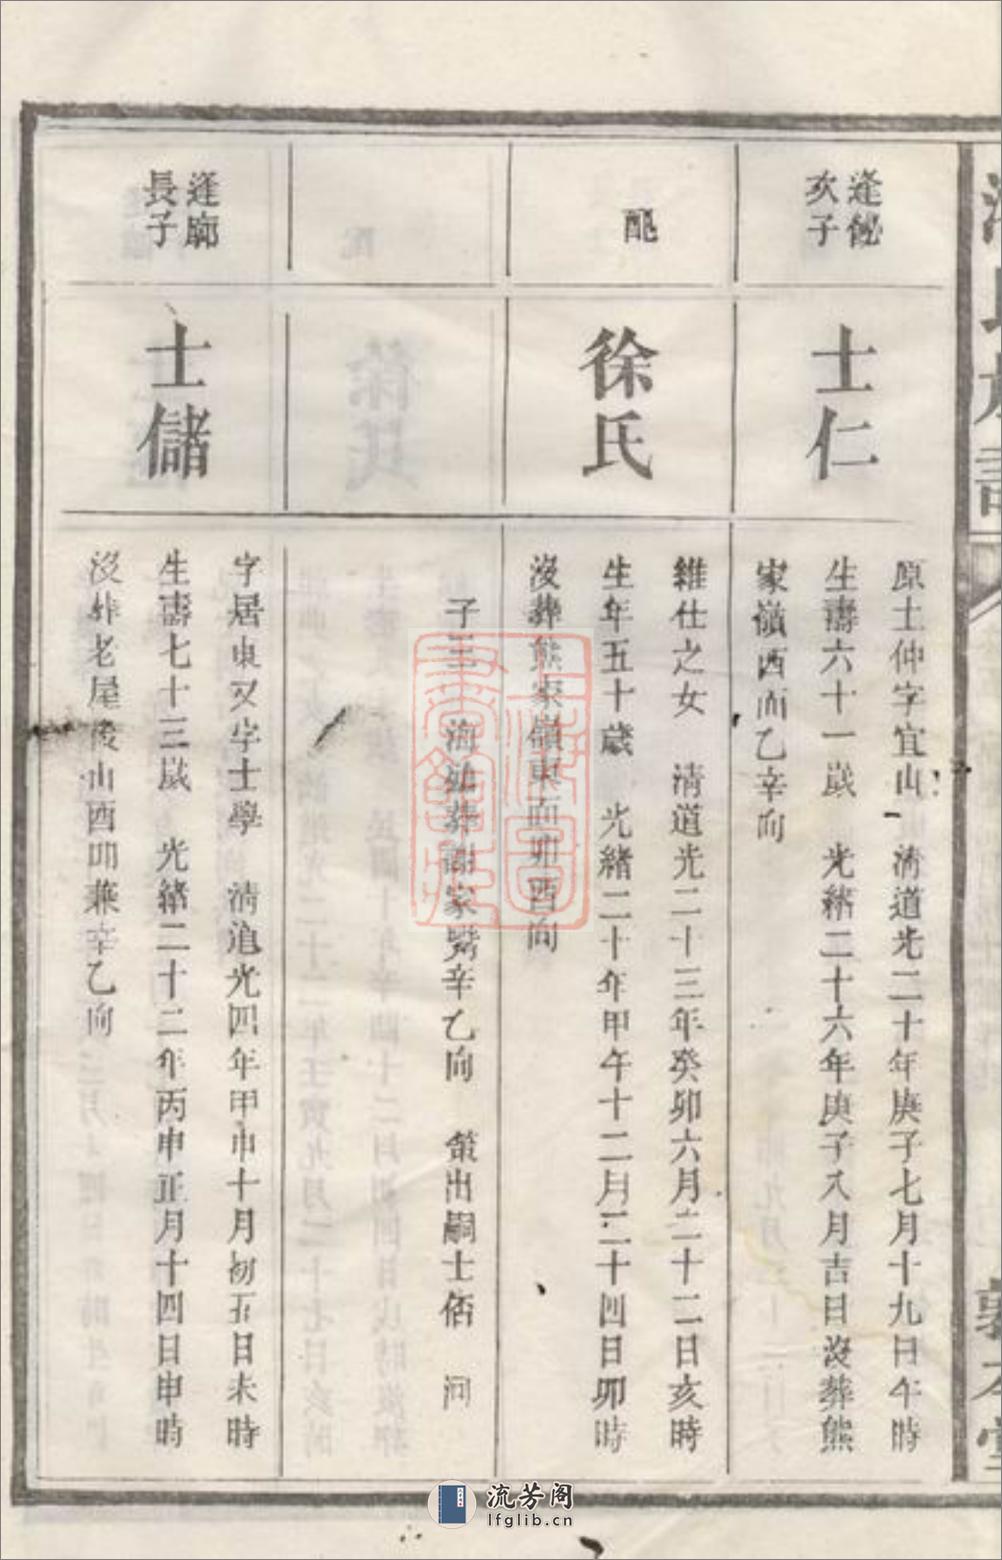 逢
次子
士仁
原士仲字宜山　清道光二十年庚子七月十九日午時
生壽六十一歲　光緒二十六年庚子八月吉日沒葬熊
家嶺西面乙辛向
配
徐氏
維仕之女　清道光二十三年癸卯六月二十二日亥時
生年五十歲　光緒二十年甲午十二月二十四日卯時
沒葬熊家嶺東面卯酉向
子三　海幼葬謝家辛乙向　策出嗣士俗　洞
逢廓
長子
士儲
字居東又字士學　清道光四年甲申十月初五日未時
生壽七十三歲　光緒二十二年丙申正月十四日申時
沒葬老屋後山酉卯兼辛乙向
氏族譜
本堂
流芳阁
lfglib.cn